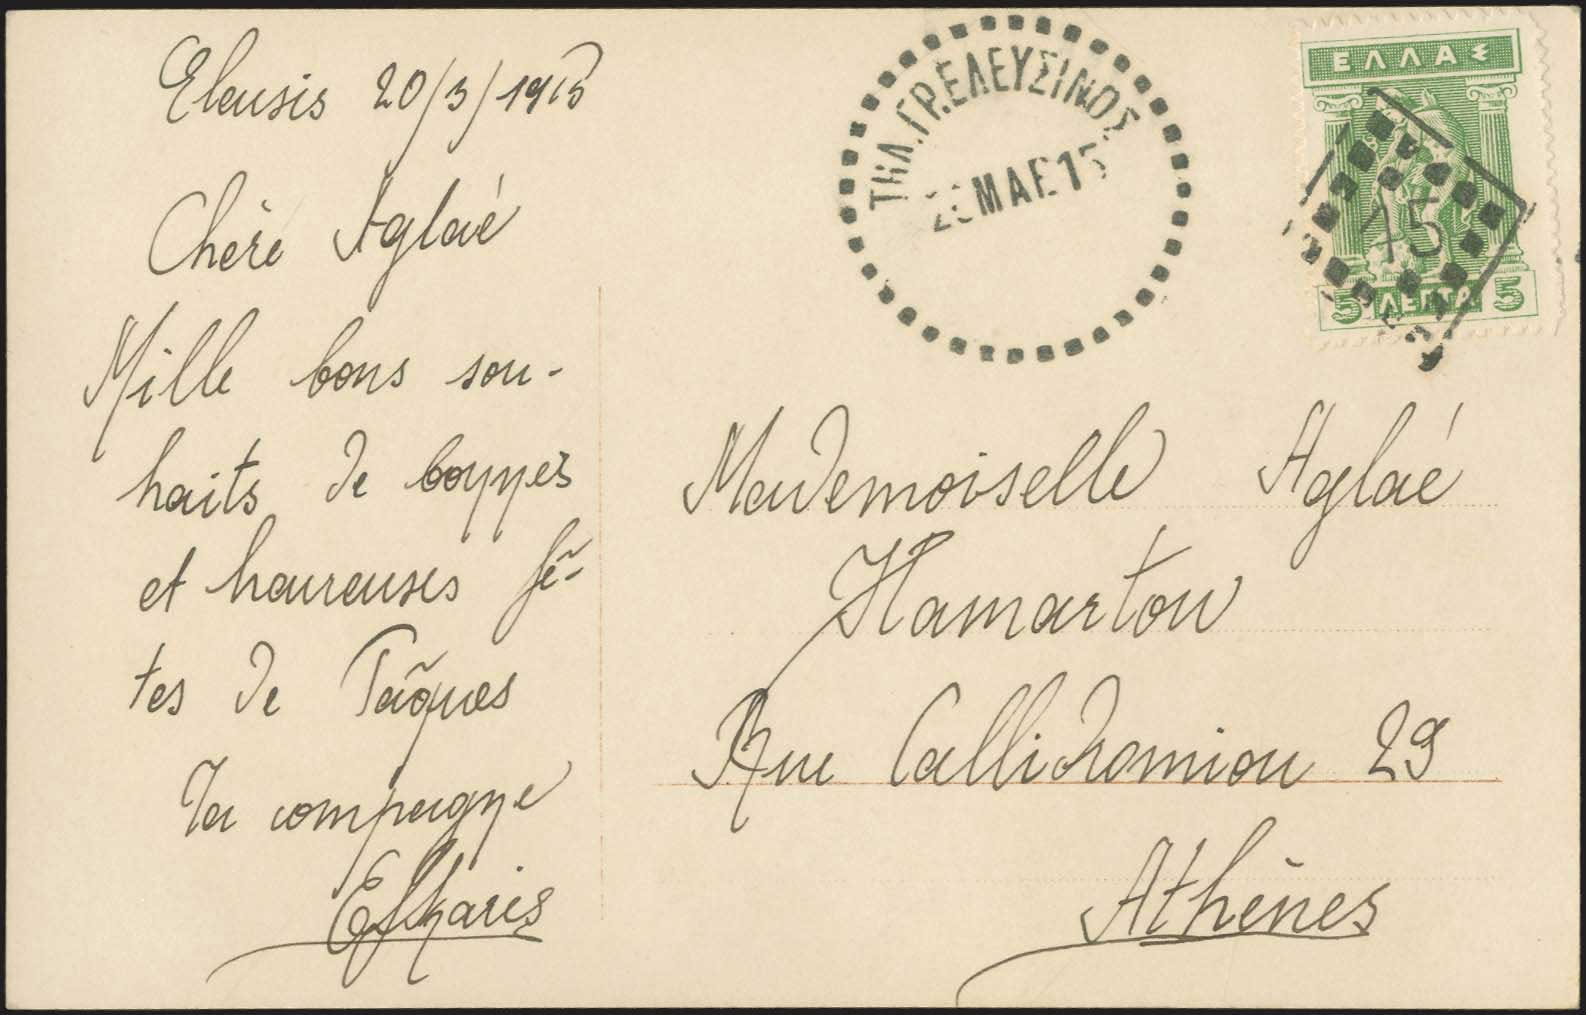 Eleusis 20/3/1915
Chère Aglaé
Mille bons sou-
haits de bonnes
et heureuses fê-
tes de Pâques
Ta compagne
Efharis
ΤΗΛ.ΓΡ.ΕΛΕΥΣΙΝΟΣ
ΜΑΡ 15
ΕΛΛΑΣ
15
5 ΛΕΠΤΑ 5
Mademoiselle Aglaé
Hamartou
Rue Callidromiou 29
Athènes